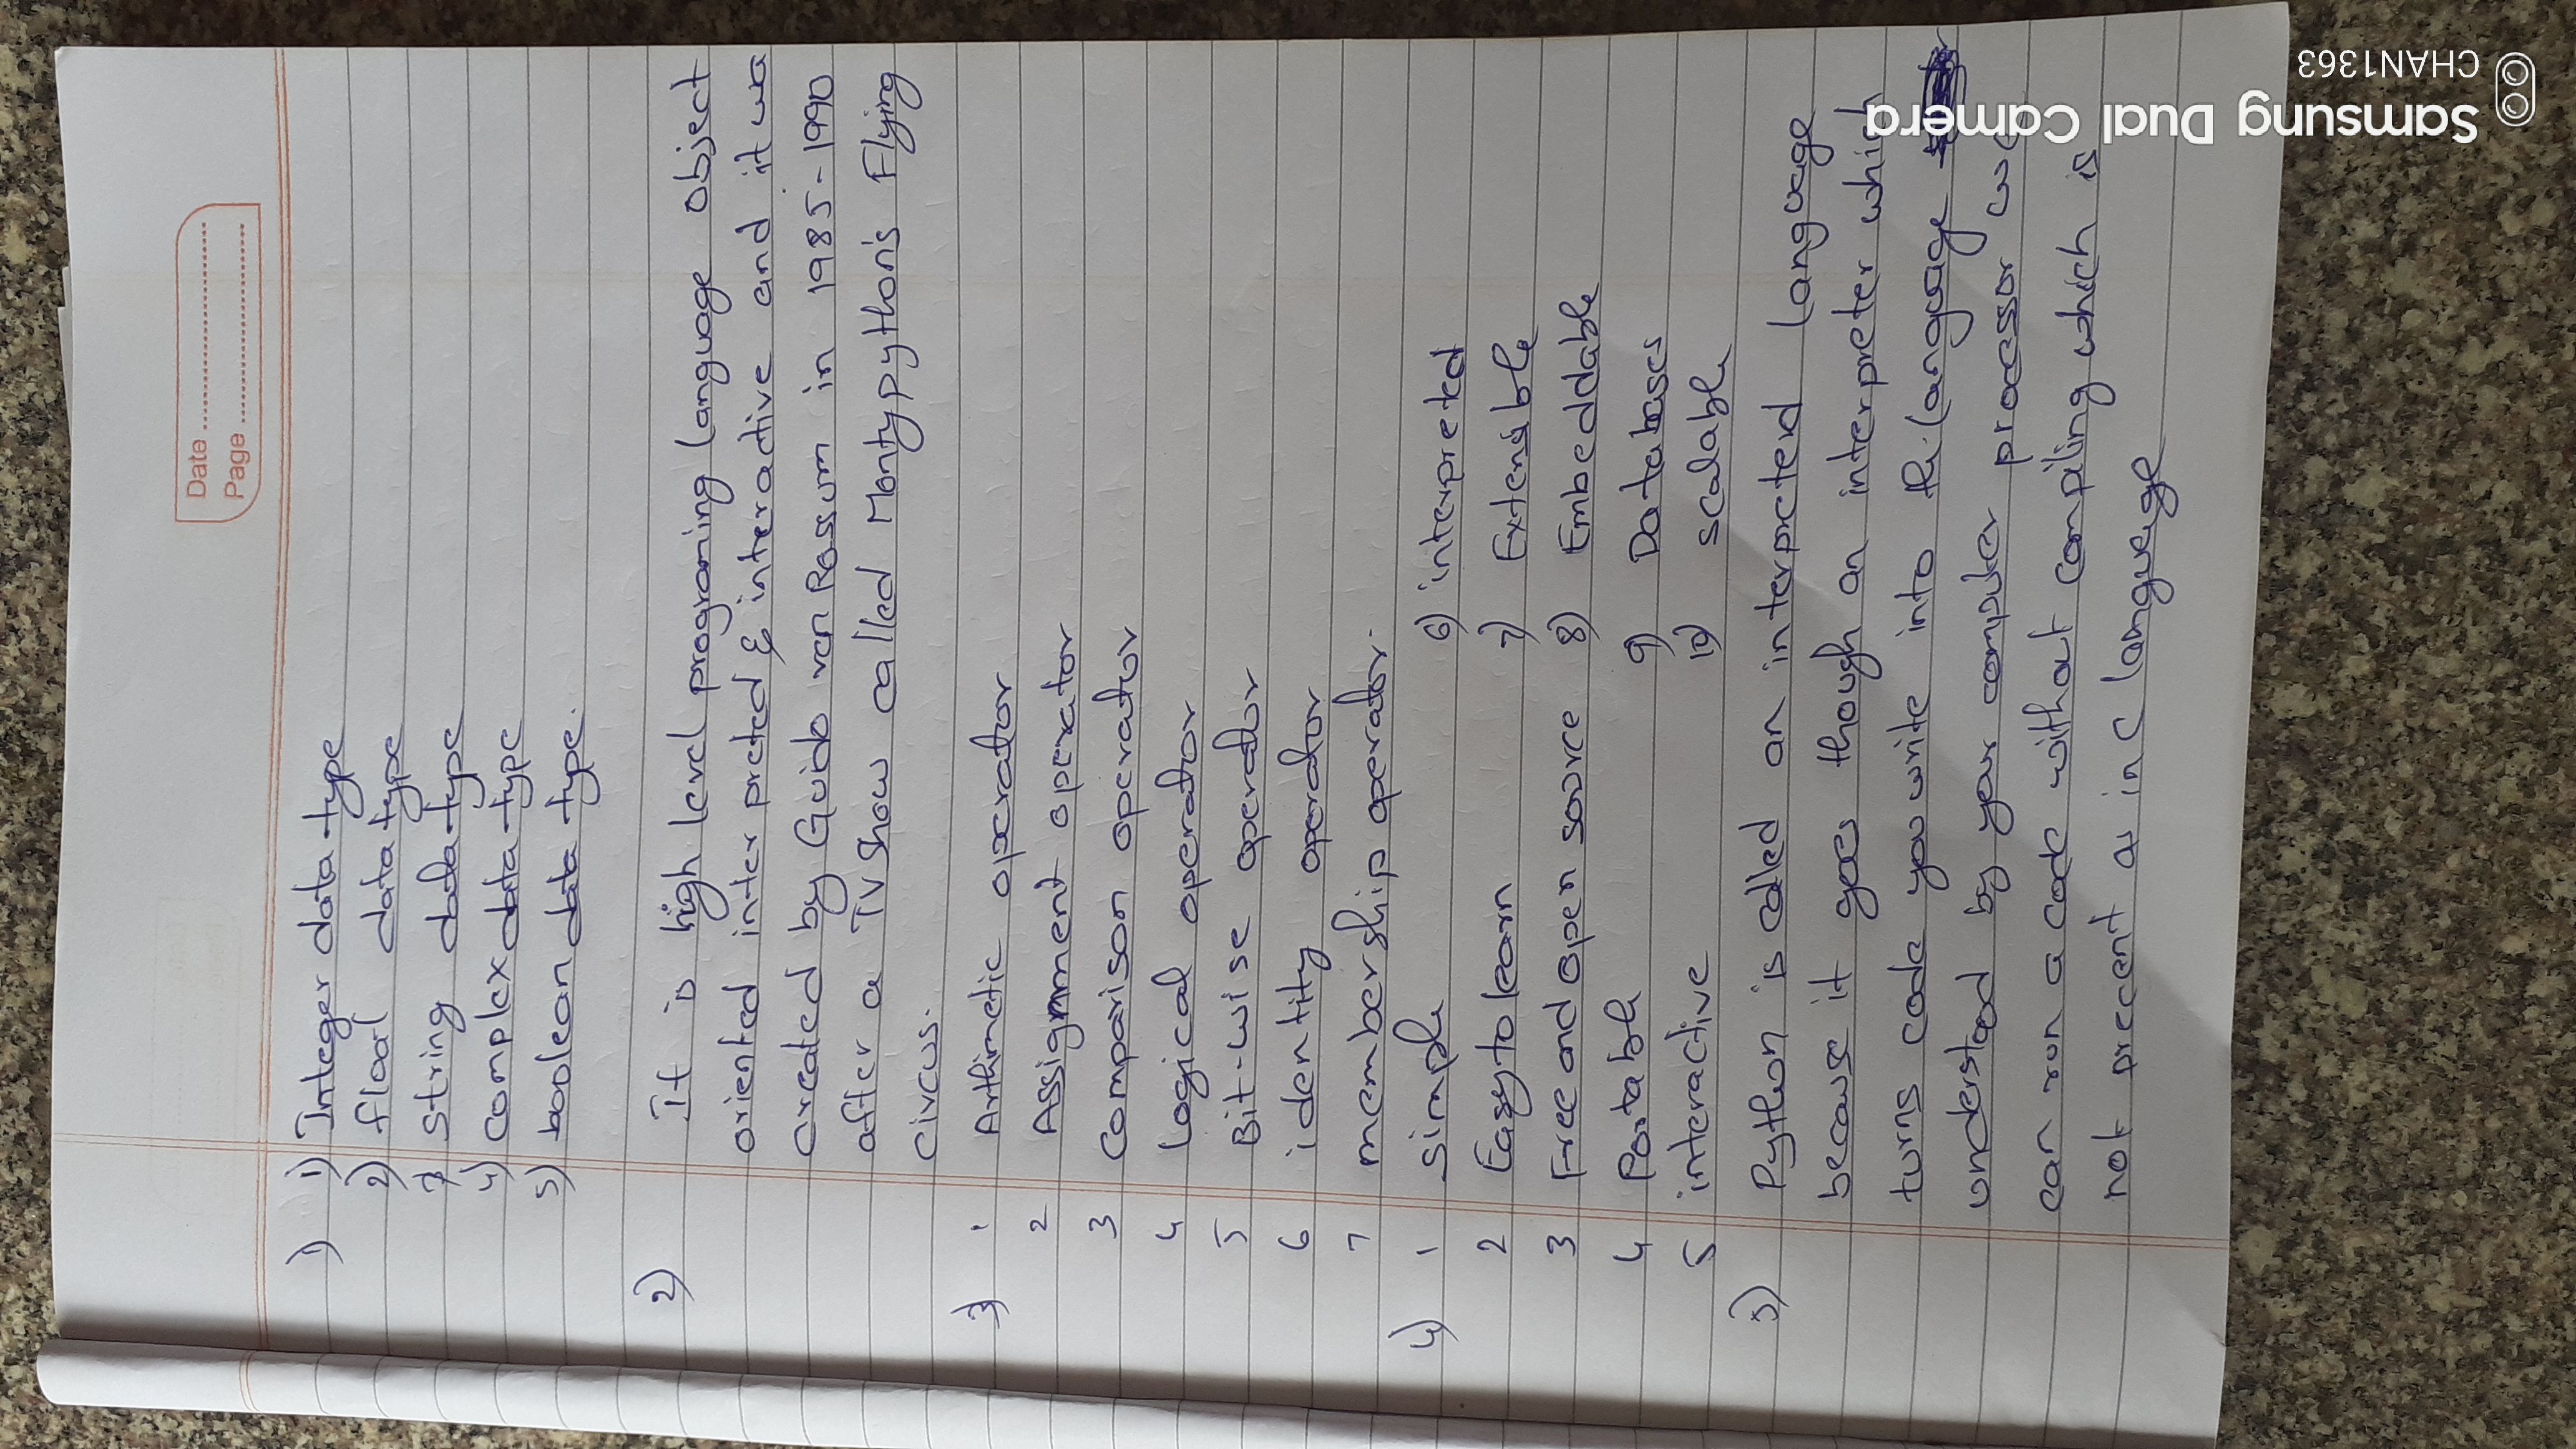 Date ........................
Page ........................
1) 1) Integer data type
2) float data type
3) string data type
4) complex data type
5) boolean data type.
2) It is high level programing language object
oriented inter preted & interactive and it was
created by Guido van Rossum in 1985-1990
after a TV show called Monty python's Flying
circus.
3) 1 Arthimetic operator
2 Assignment operator
3 Comparison operator
4 logical operator
5 Bit-wise operator
6 identity operator
7 membership operator.
4) 1 simple 6) interpreted
2 Easy to learn 7) Extensible
3 Free and open source 8) Embeddable
4 Portable 9) Databases
5 interactive 10) scalable
5) Python is called an interpreted language
because it goes though an interpreter which
turns code you write into the language
understood by your computer processor we
can run a code without compiling which is
not precent as in C language
Samsung Dual Camera
CHAN1363